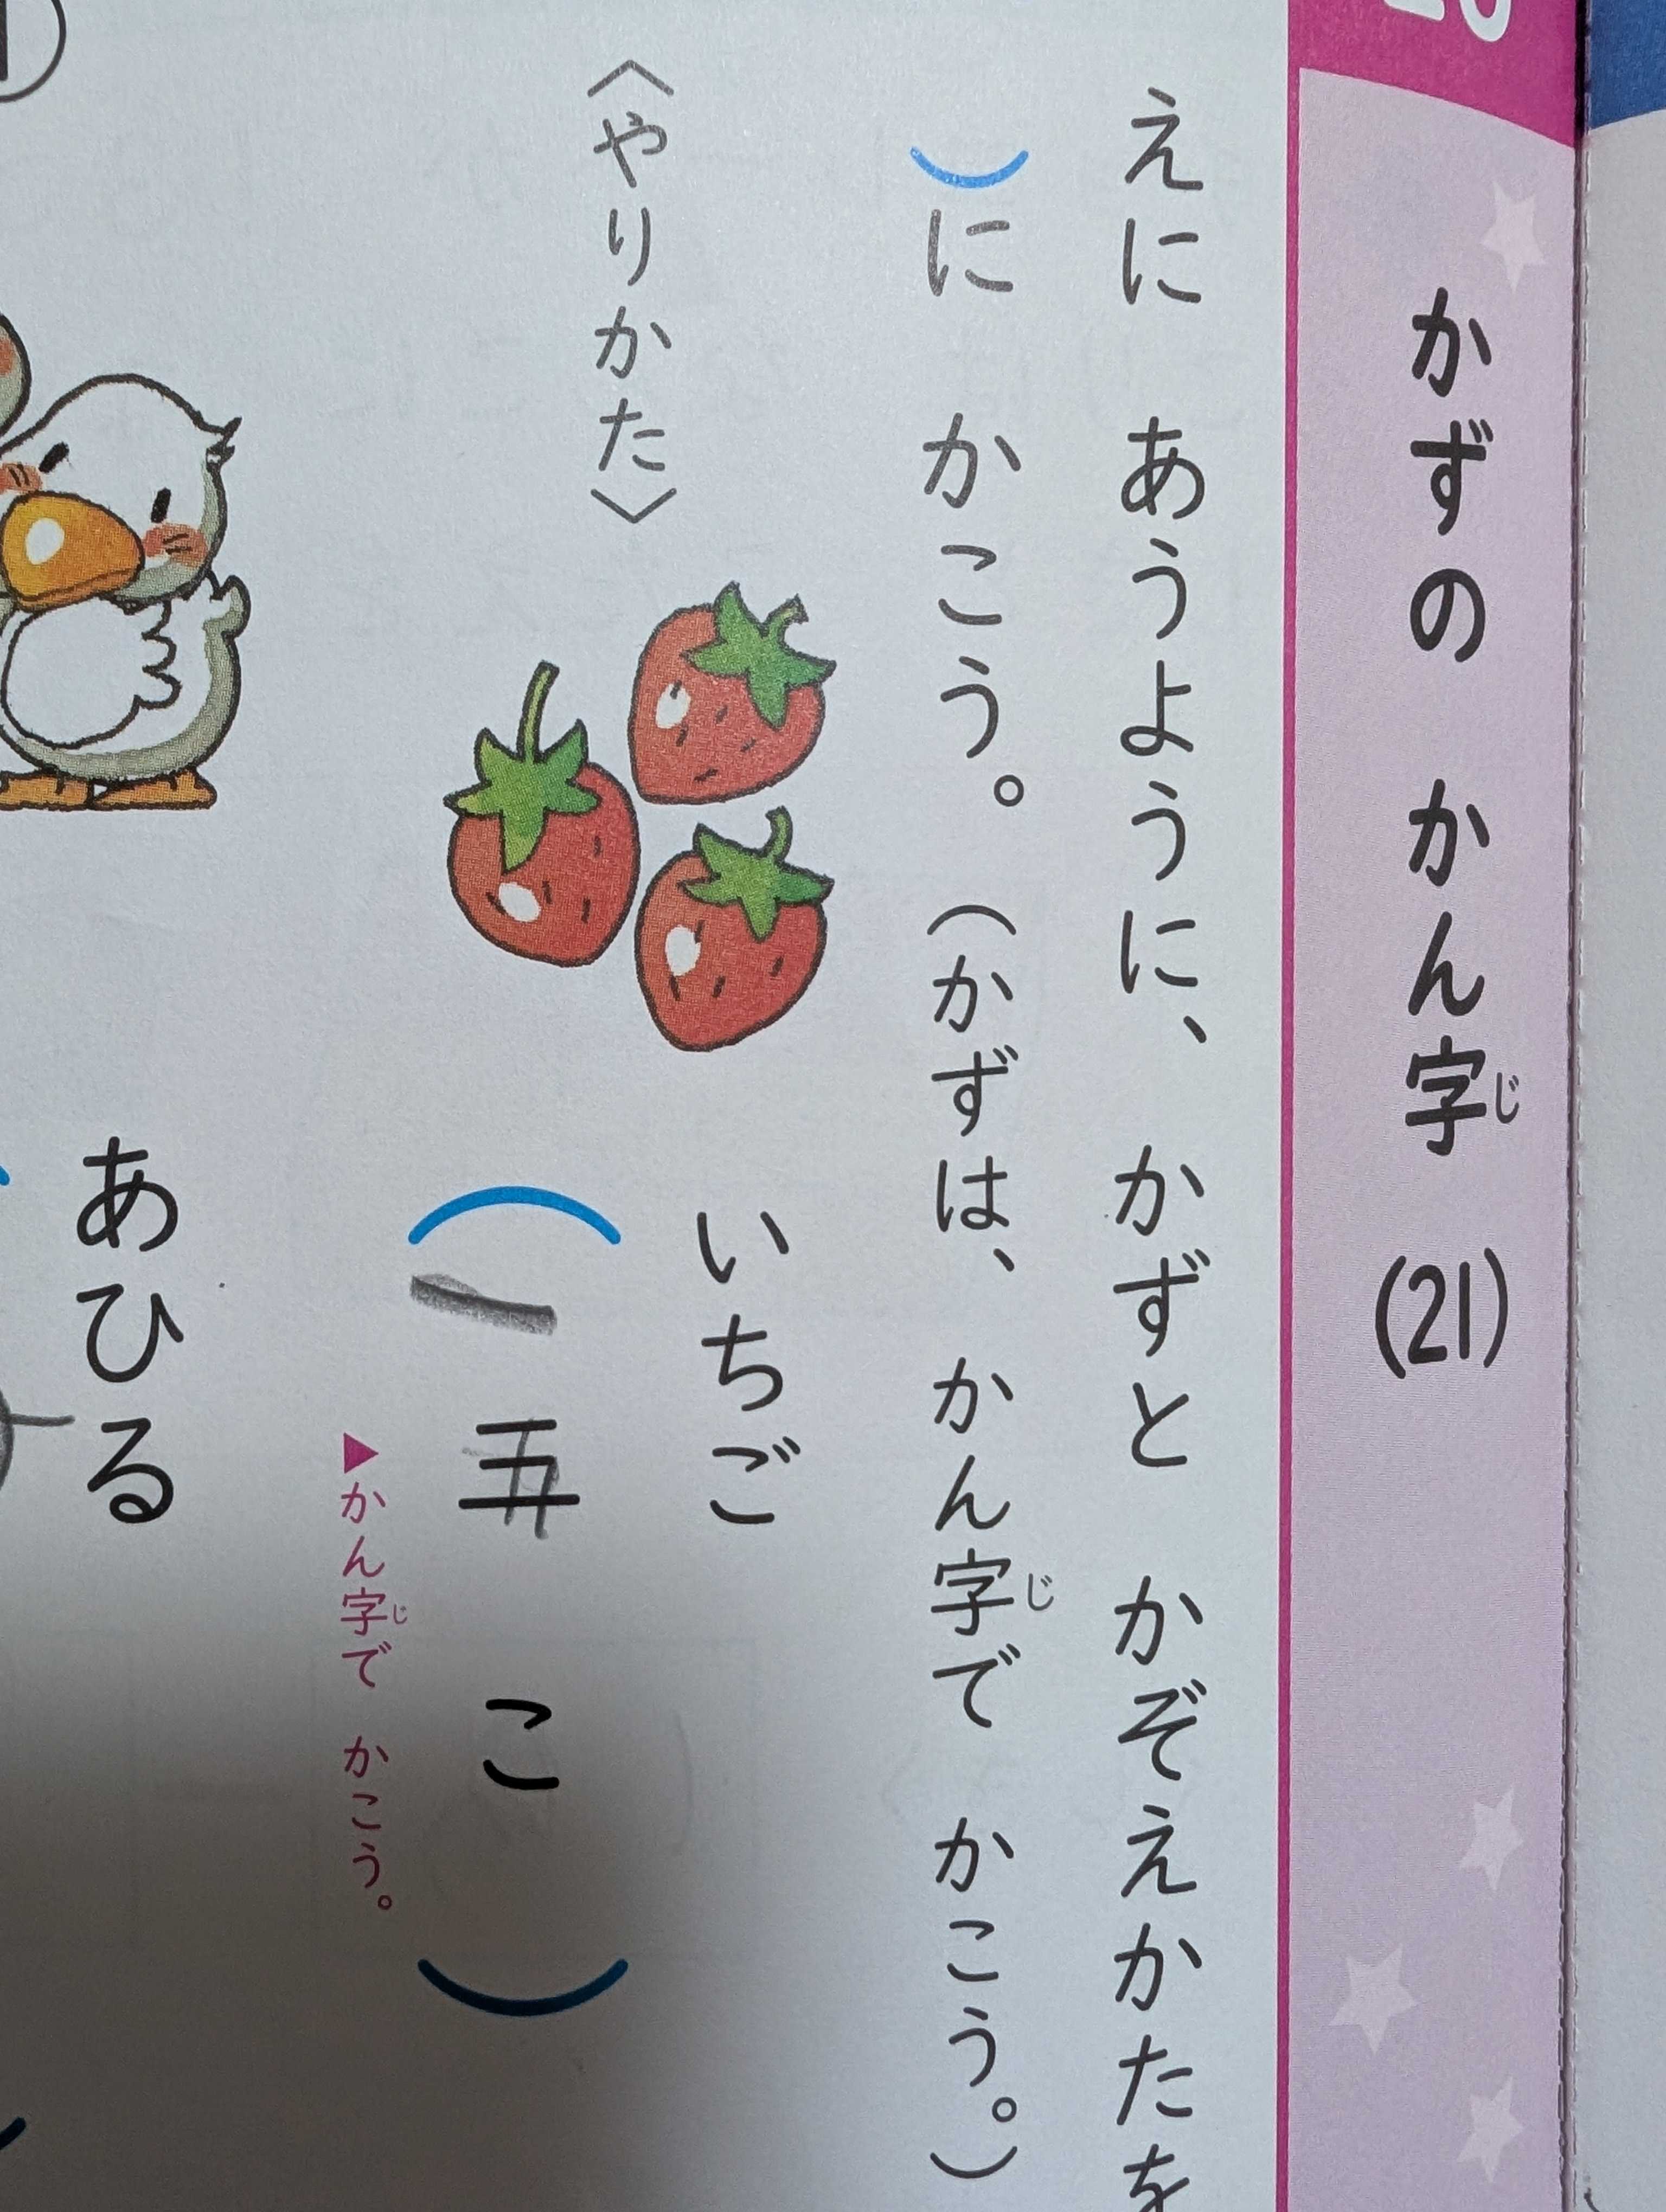 かずの かん字 (21)
じ
えに あうように、 かずと かぞえかたを
）に かこう。（かずは、 かん字で かこう。）
じ
〈やりかた〉
いちご
（ 三 こ ）
▶かん字で かこう。
じ
あひる